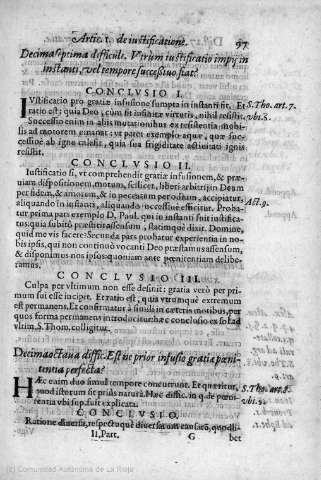 Artic. 1. de iustificatione. 97
Decimaseptima difficult. Vtrum iustificatio impij in
instanti, vel tempore successiuo fiat.
CONCLVSIO I.
IVstificatio pro gratiæ infusione sumpta in instanti fit. Et S. Tho. art. 7.
ratio est; quia Deo, cum sit infinitæ virtutis, nihil resistit. vbi. s.
Successio enim in alijs mutationibus ex resistentia mobi-
lis ad motorem emanat: vt patet exemplo aquæ, quæ suc-
cessiuè ab igne calescit, quia sua frigiditate actiuitati ignis
resistit.
CONCLVSIO II.
Iustificatio si, vt comprehendit gratiæ infusionem, & præ-
uiam dispositionem, motum, scilicet, liberi arbitrij in Deum
per fidem, & amorem, & in peccatum per odium, accipiatur,
aliquando in instanti, aliquando successiuè efficitur. Proba- Act. 9.
tur prima pars exemplo D. Paul. qui in instanti fuit iustifica-
tus; quia subitò præstitit assensum, statimque dixit. Domine,
quid me vis facere: Secunda pars probatur experientia in no-
bis ipsis, qui non continuò vocanti Deo præstamus assensum,
& disponimus nos ipsos quoniam ante pœnitentiam delibe-
ramus.
CONCLVSIO III.
Culpa per vltimum non esse desinit: gratia verò per pri-
mum sui esse incipit. Et ratio est, quia vtrumque extremum
est permanens, Et confirmatur à simili in cæteris motibus, per
quos forma permanens introducitur hæc conclusio ex solad
vltim. S. Thom. colligitur.
Decimaoctaua diffic. Est ne prior infusio gratiæ pœni
tentia perfecta?
HÆc enim duo simul tempore concurrunt. Et quæritur, S. Tho. art. 8.
quod istorum sit prius natura. Hæc diffic. in q. de pœni- vbi. s.
tentia vbi sup. fuit explicata.
CONCLVSIO.
Ratione diuersa, respectuque diuersarum causarũ, quodli-
Ii. Part. G bet
(c) Comunidad Autónoma de La Rioja